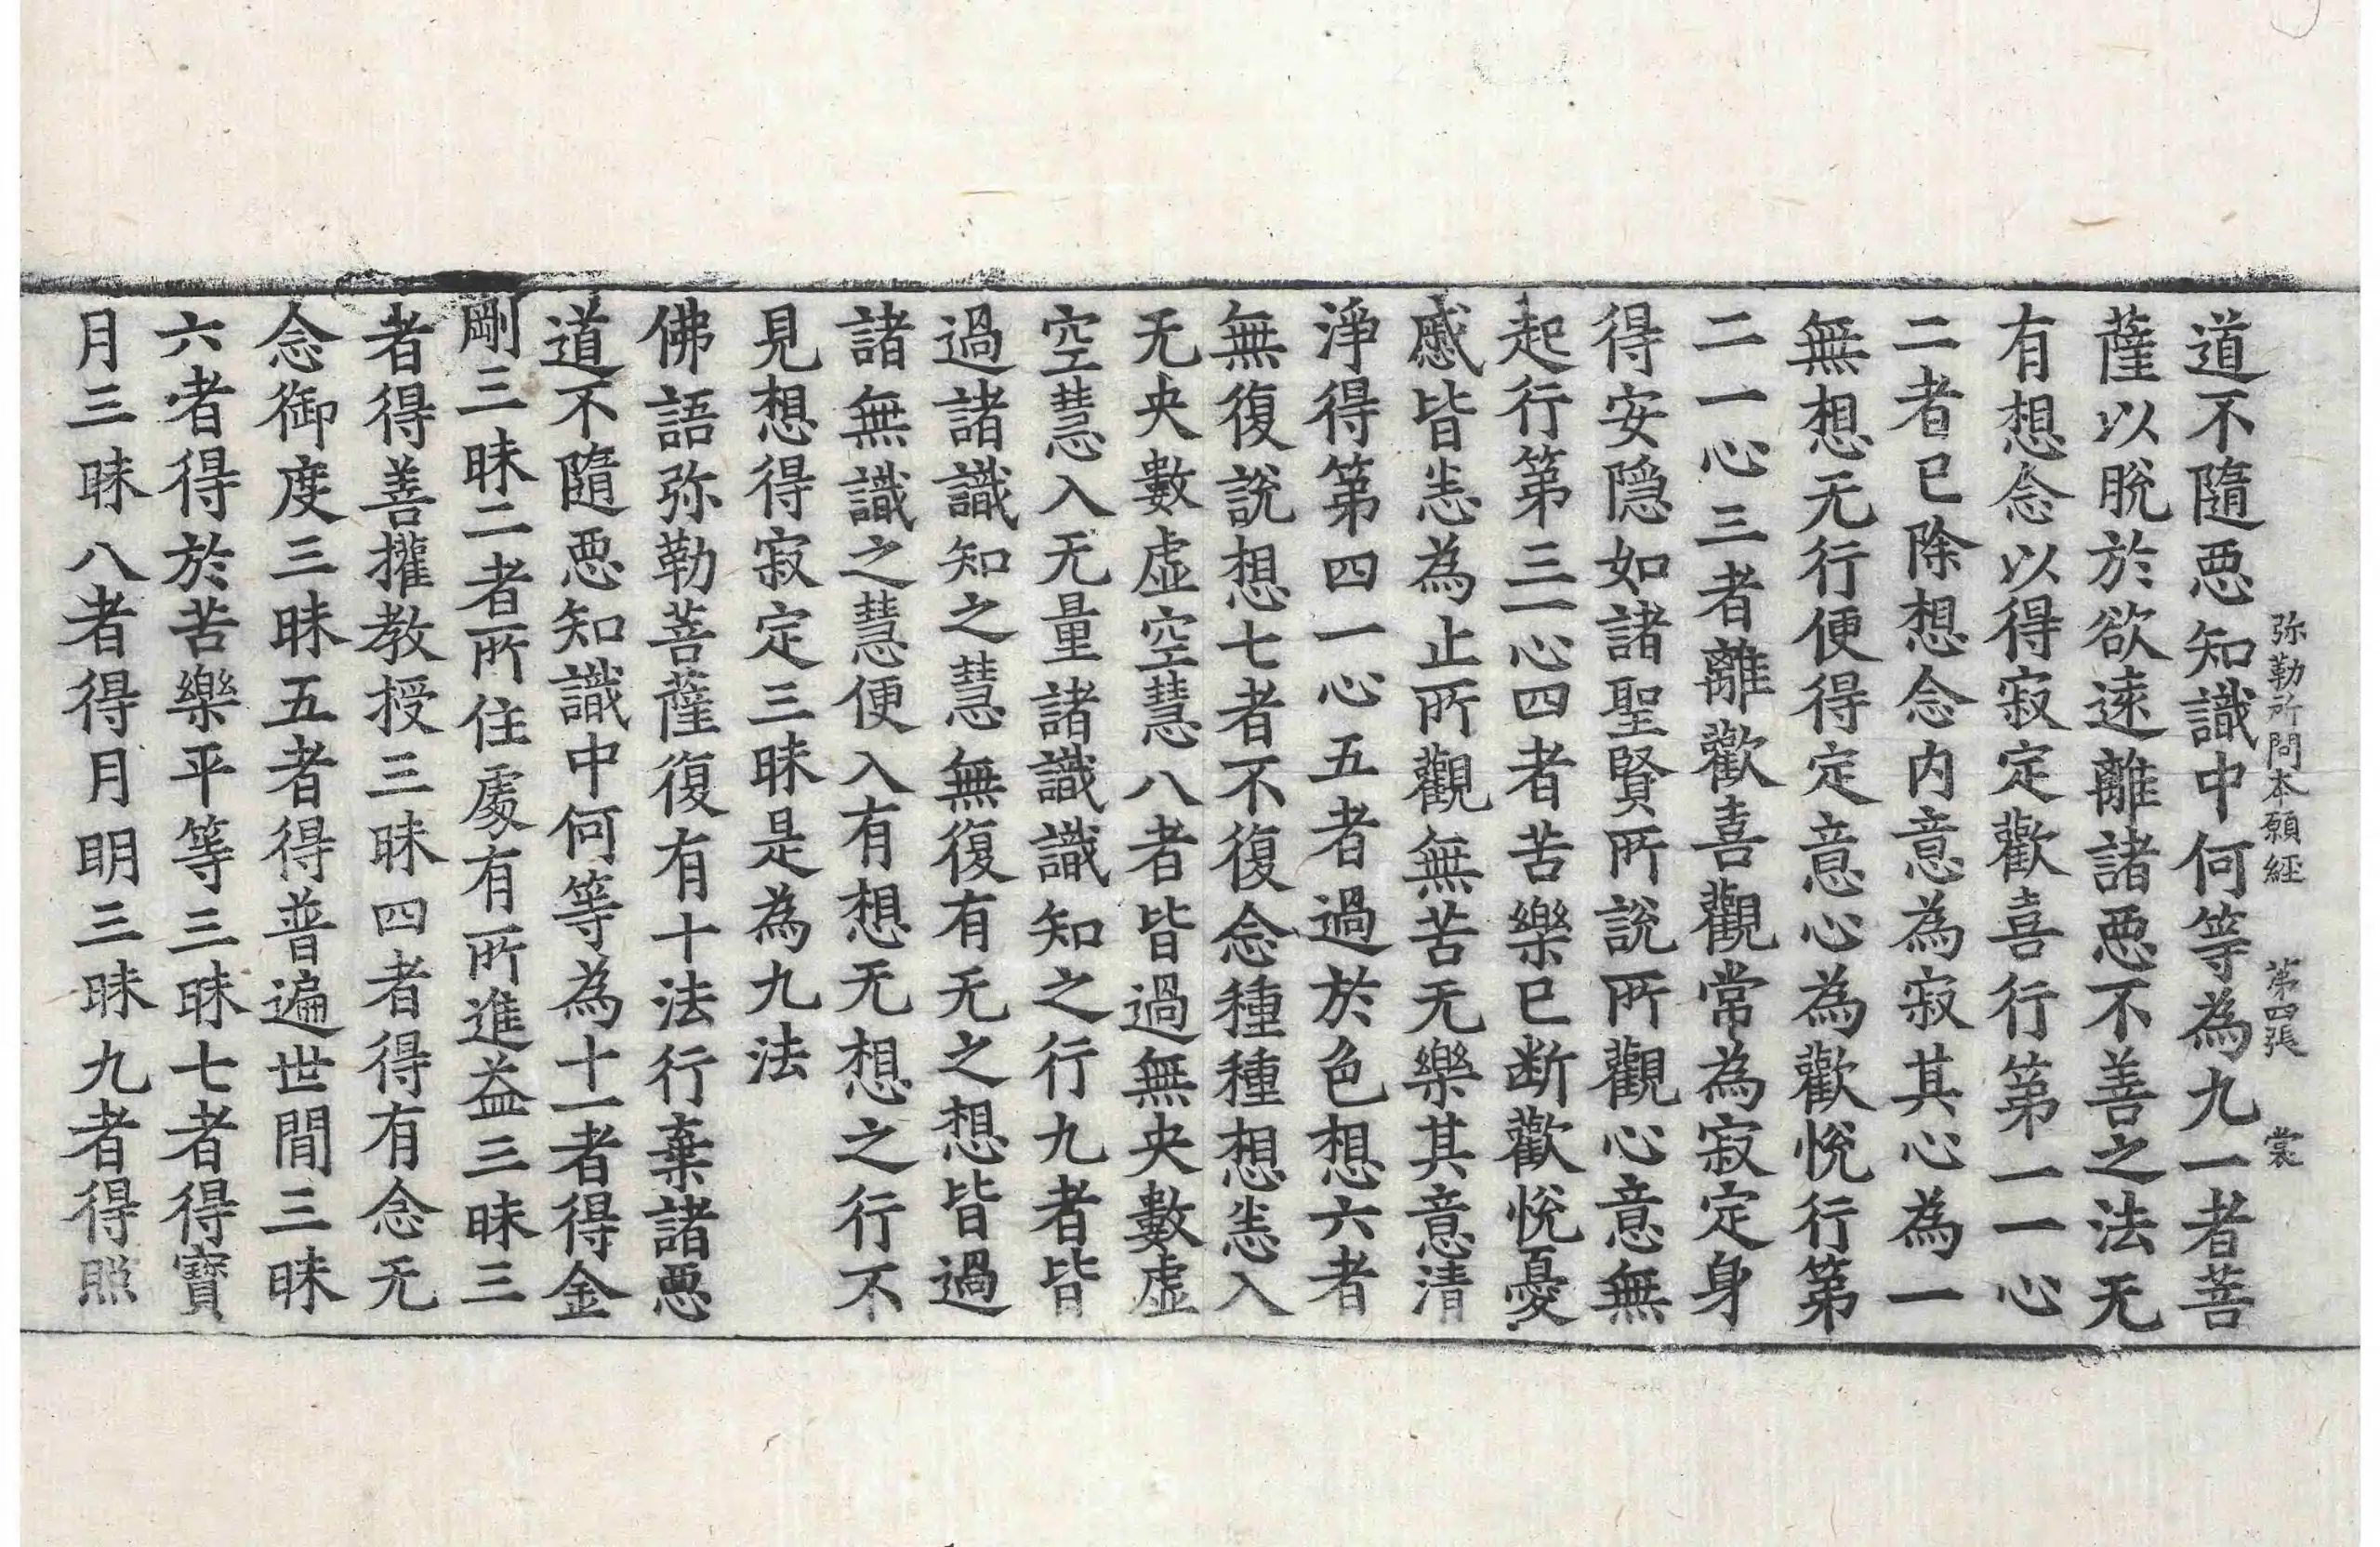 弥勒所問本願經 第四張 裳
道不隨惡知識中何等為九一者菩
薩以脫於欲遠離諸惡不善之法无
有想念以得寂定歡喜行第一一心
二者已除想念内意為寂其心為一
無想无行便得定意心為歡悅行第
二一心三者離歡喜觀常為寂定身
得安隠如諸聖賢所說所觀心意無
起行第三一心四者苦樂已断歡悅憂
慼皆悉為止所觀無苦无樂其意清
淨得第四一心五者過於色想六者
無復說想七者不復念種種想悉入
无央數虛空慧八者皆過無央數虛
空慧入无量諸識識知之行九者皆
過諸識知之慧無復有无之想皆過
諸無識之慧便入有想无想之行不
見想得寂定三昧是為九法
佛語弥勒菩薩復有十法行棄諸惡
道不隨惡知識中何等為十一者得金
剛三昧二者所住處有所進益三昧三
者得善權教授三昧四者得有念无
念御度三昧五者得普遍世間三昧
六者得於苦樂平等三昧七者得寶
月三昧八者得月明三昧九者得照